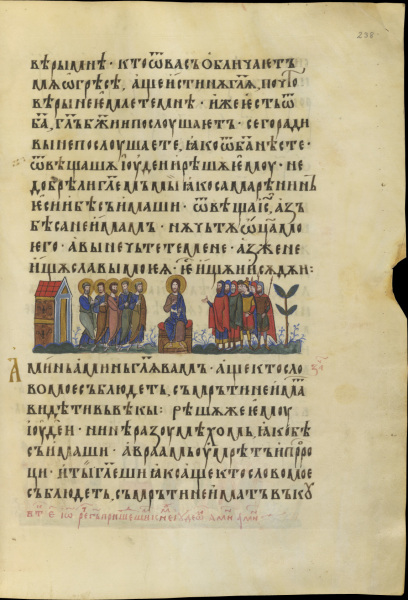 вѣрымнѣ · ктоѿвасъобличаетъ
мѧѡгрѣсѣ, ащеистинѫглѧ, почто
вѣрынеемлетемнѣ · ижеестьѿ
ба҃, гл҃ъбж҃иипослоушаетъ · сегоради
выпепослоушаете, ꙗкоѿба҃нѣсте ·
ѿвѣщашѧіоудеиирѣшѧемоу · не
добрѣлиглемъмы ꙗкосамарѣнинъ
есиибѣсъимаши · ѿвѣщаіс҃, азъ
бѣсанеимамъ · нѫчьтѫѡц҃амо
его · авынечьтетемене · азжене
ищѫславымоеѧ · е҃ищѧиисѫдѧи :
Аминьаминьглѧвамъ · ащектосло
вомоесъблюдетъ, съмрътинеима
видѣтивъвѣкы : рѣшѧжеемоу
іоудеи · нинѣразоумѣхомъ, ꙗкобѣ
съимаши · авраамьоумрѣтъипро
ци · итыглешиꙗкоащектословомое
съблюдетъ, съмрътинеиматъвъку